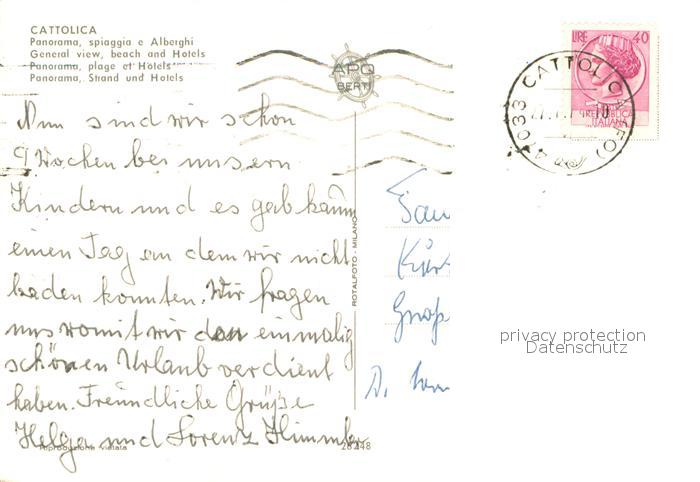 CATTOLICA
Panorama, spiaggia e Alberghi
General view, beach and Hotels
Panorama, plage et Hotels
Panorama, Strand und Hotels
APQ
BERTI
LIRE 40
REPUBBLICA
ITALIANA
47033 CATTOLICA (FO)
Nun sind wir schon
9 Wochen bei unsern
Kindern und es gab kaum
einen Tag an dem wir nicht
baden konnten. Wir fragen
uns womit wir den einmalig
schönen Urlaub verdient
haben. Freundliche Grüße
Helga und Lorenz Himmler
ROTALFOTO - MILANO
Riproduzione vietata
28248
privacy protection
Datenschutz